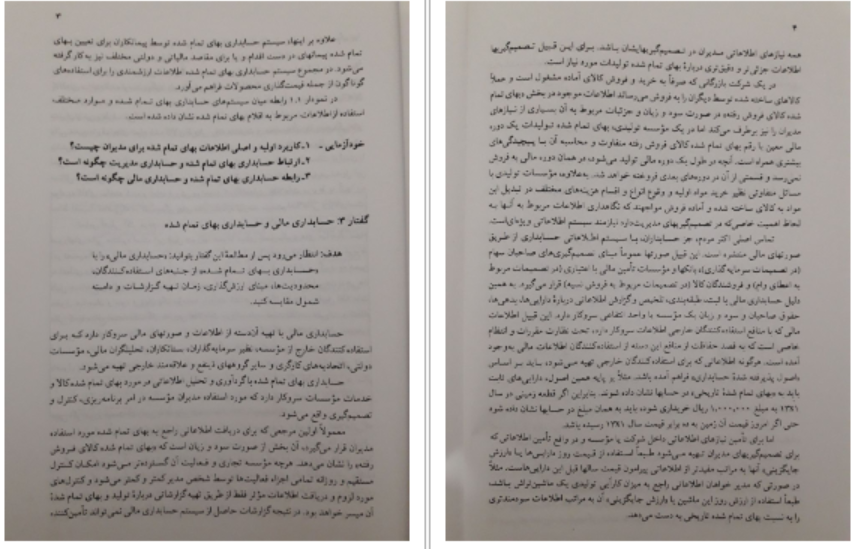 ۳
علاوه بر اینها، سیستم حسابداری بهای تمام شده توسط پیمانکاران برای تعیین بهای
تمام شده پیمانهای در دست اقدام و یا برای مقاصد مالیاتی و دولتی مختلف نیز به کار گرفته
می‌شود. در مجموع سیستم حسابداری بهای تمام شده اطلاعات ارزشمندی را برای استفاده‌های
گوناگون از جمله قیمت‌گذاری محصولات فراهم می‌آورد.
در نمودار ۱.۱ رابطه میان سیستم‌های حسابداری بهای تمام شده و موارد مختلف
استفاده از اطلاعات مربوط به اقلام بهای تمام شده نشان داده شده است.
خودآزمایی ـ ۱ـ کاربرد اولیه و اصلی اطلاعات بهای تمام شده برای مدیران چیست؟
۲ـ ارتباط حسابداری بهای تمام شده و حسابداری مدیریت چگونه است؟
۳ـ رابطه حسابداری بهای تمام شده و حسابداری مالی چگونه است؟
گفتار ۳: حسابداری مالی و حسابداری بهای تمام شده
هدف: انتظار می‌رود پس از مطالعهٔ این گفتار بتوانید: «حسابداری مالی» را با
«حسابداری بهای تمام شده» از جنبه‌های استفاده‌کنندگان،
محدودیت‌ها، مبنای ارزش‌گذاری، زمان تهیه گزارشات و دامنه
شمول مقایسه کنید.
حسابداری مالی با تهیه آن‌دسته از اطلاعات و صورتهای مالی سروکار دارد که برای
استفاده‌کنندگان خارج از مؤسسه، نظیر سرمایه‌گذاران، بستانکاران، تحلیلگران مالی، مؤسسات
دولتی، اتحادیه‌های کارگری و سایر گروههای ذینفع و علاقه‌مند خارجی تهیه می‌شود.
حسابداری بهای تمام شده با گردآوری و تحلیل اطلاعاتی در مورد بهای تمام شده کالا و
خدمات مؤسسات سروکار دارد که مورد استفاده مدیران مؤسسه در امر برنامه‌ریزی، کنترل و
تصمیم‌گیری واقع می‌شود.
معمولاً اولین مرجعی که برای دریافت اطلاعاتی راجع به بهای تمام شده مورد استفاده
مدیران قرار می‌گیرد، آن بخش از صورت سود و زیان است که «بهای تمام شده کالای فروش
رفته» را نشان می‌دهد. هرچه مؤسسه تجاری و فعالیت آن گسترده‌تر می‌شود امکان کنترل
مستقیم و روزانه تمامی اجزاء فعالیت‌ها توسط شخص مدیر کمتر و کمتر می‌شود و کنترل‌های
مورد لزوم و دریافت اطلاعات مؤثر فقط از طریق تهیه گزارشاتی دربارهٔ تولید و بهای تمام شدهٔ
آن میسر خواهد بود. در نتیجه گزارشات حاصل از سیستم حسابداری مالی نمی‌تواند تأمین‌کننده
۴
همه نیازهای اطلاعاتی مدیران در تصمیم‌گیریهایشان باشد. برای این قبیل تصمیم‌گیریها
اطلاعات جزئی‌تر و دقیق‌تری دربارهٔ بهای تمام شده تولیدات مورد نیاز است.
در یک شرکت بازرگانی که صرفاً به خرید و فروش کالای آماده مشغول است و عملاً
کالاهای ساخته شده توسط دیگران را به فروش می‌رساند اطلاعات موجود در بخش «بهای تمام
شده کالای فروش رفته» در صورت سود و زیان و جزئیات مربوط به آن بسیاری از نیازهای
مدیران را نیز برطرف می‌کند اما در یک مؤسسه تولیدی، بهای تمام شده تولیدات یک دوره
مالی معین با رقم بهای تمام شده کالای فروش رفته متفاوت و محاسبه آن با پیچیدگی‌های
بیشتری همراه است. آنچه در طول یک «دوره مالی تولید می‌شود» در همان دوره مالی به فروش
نمی‌رسد و قسمتی از آن در دوره‌های بعدی فروخته خواهد شد. به‌علاوه، مؤسسات تولیدی با
مسائل متفاوتی نظیر خرید مواد اولیه و وقوع انواع و اقسام هزینه‌های مختلف در تبدیل این
مواد به کالای ساخته شده و آماده فروش مواجهند که نگاهداری اطلاعات مربوط به آنها به
لحاظ اهمیت خاصی که در تصمیم‌گیریهای مدیریت دارد نیازمند سیستم اطلاعاتی ویژه‌ای است.
تماس اصلی اکثر مردم، جز حسابداران، با سیستم اطلاعاتی حسابداری از طریق
صورتهای مالی منتشره است. این قبیل صورتها عموماً مبنای تصمیم‌گیری‌های صاحبان سهام
(در تصمیمات سرمایه‌گذاری)، بانکها و مؤسسات تأمین مالی یا اعتباری (در تصمیمات مربوط
به اعطای وام) و فروشندگان کالا (در تصمیمات مربوط به فروش نسیه) قرار می‌گیرد. به همین
دلیل حسابداری مالی با ثبت، طبقه‌بندی، تلخیص و گزارش اطلاعاتی دربارهٔ دارایی‌ها، بدهی‌ها،
حقوق صاحبان و سود و زیان یک مؤسسه یا واحد انتفاعی سروکار دارد. این قبیل اطلاعات
مالی که با منافع استفاده‌کنندگان خارجی اطلاعات سروکار دارد، تحت نظارت مقررات و انتظام
خاصی است که به قصد حفاظت از منافع این دسته از استفاده‌کنندگان اطلاعات مالی به‌وجود
آمده است. هرگونه اطلاعاتی که برای استفاده‌کنندگان خارجی تهیه می‌شود، باید بر اساس
«اصول پذیرفته شدهٔ حسابداری» فراهم آمده باشد. مثلاً بر پایه همین اصول، دارایی‌های ثابت
باید به «بهای تمام شدهٔ تاریخی» در حسابها نشان داده شوند. بنابراین اگر قطعه زمینی در سال
۱۳۷۱ به مبلغ ۱,۰۰۰,۰۰۰ ریال خریداری شود، باید به همان مبلغ در حسابها نشان داده شود
حتی اگر امروز قیمت آن زمین به ده برابر قیمت سال ۱۳۷۱ رسیده باشد.
اما برای تأمین نیازهای اطلاعاتی داخل شرکت یا مؤسسه و در واقع تأمین اطلاعاتی که
برای تصمیم‌گیریهای مدیران تهیه می‌شود طبعاً استفاده از قیمت روز دارایی‌ها یا «ارزش
جایگزینی» آنها به مراتب مفیدتر از اطلاعاتی پیرامون قیمت سالها قبل این دارایی‌هاست. مثلاً
در صورتی که مدیر خواهان اطلاعاتی راجع به میزان کارآیی تولیدی یک ماشین‌تراش باشد،
طبعاً استفاده از ارزش روز این ماشین یا «ارزش جایگزینی» آن به مراتب اطلاعات سودمندتری
را به نسبت بهای تمام شده تاریخی به دست می‌دهد.